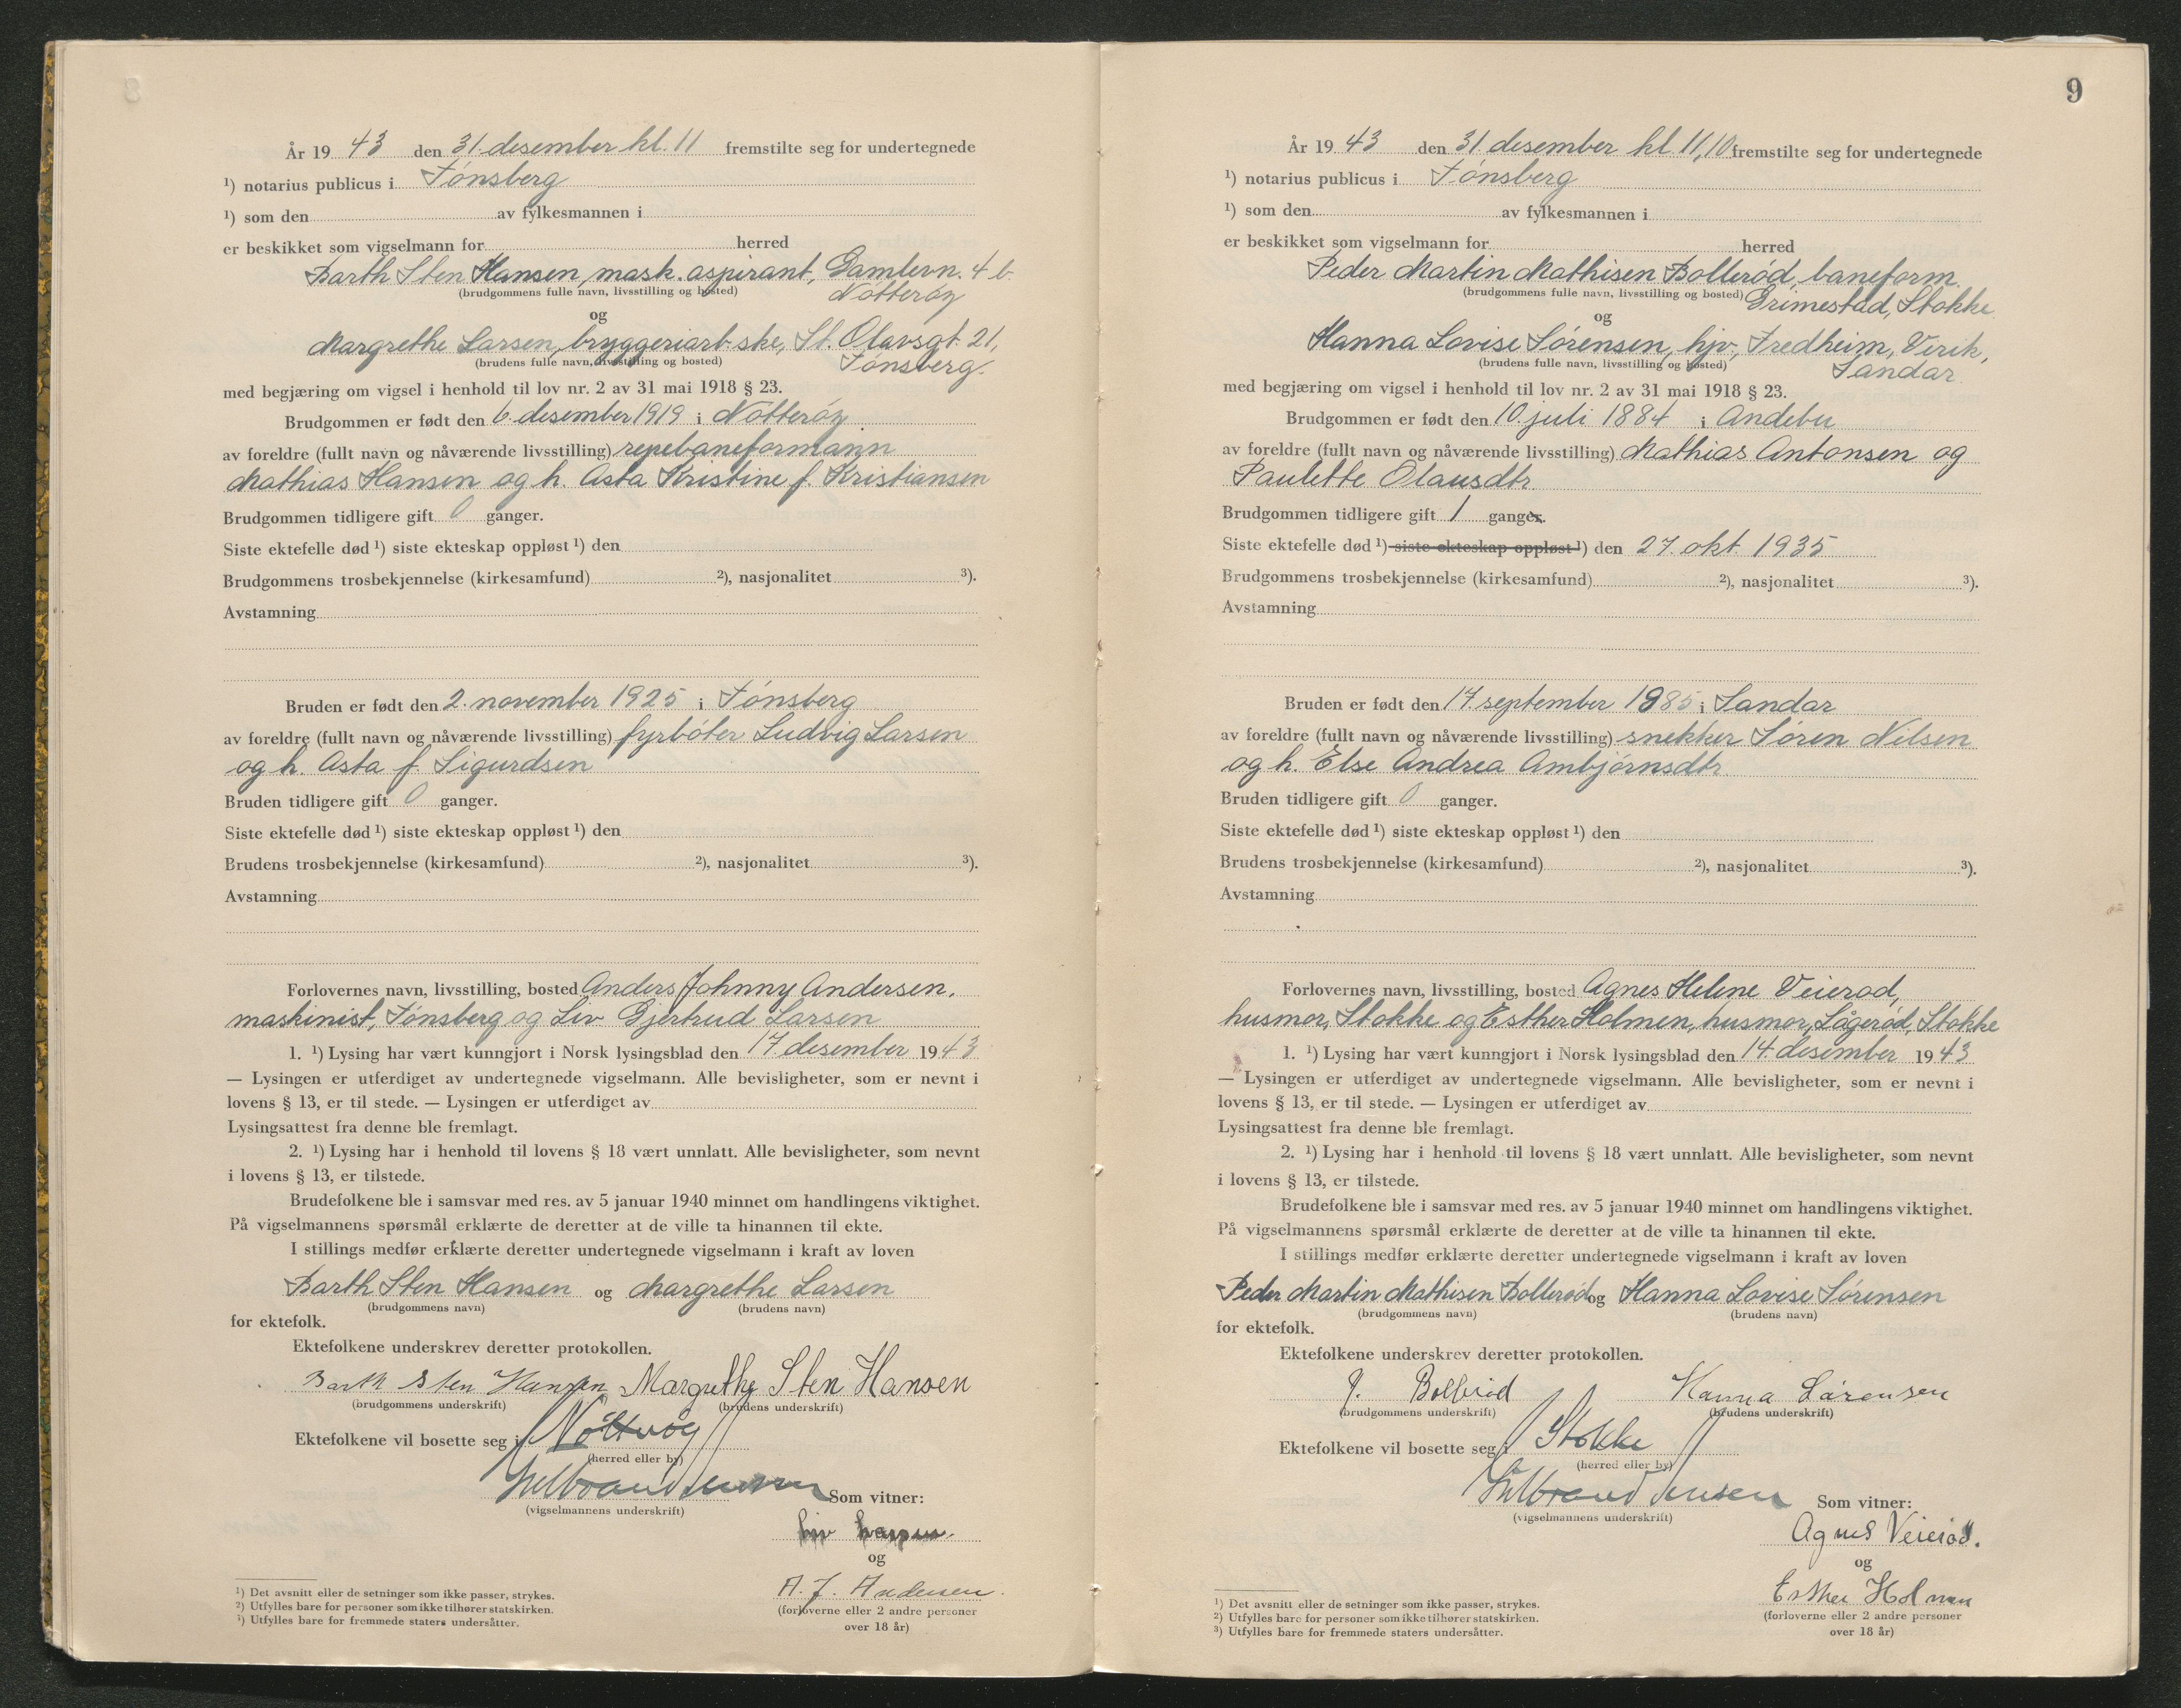 År 19 43 den 31. desember kl. 11 fremstilte seg for undertegnede
¹) notarius publicus i Tønsberg
¹) som den av fylkesmannen i
er beskikket som vigselmann for herred
Barth Sten Hansen, mask. aspirant, Gamlevn. 4 b.
(brudgommens fulle navn, livsstilling og bosted) Nøtterøy
og
Margrethe Larsen, bryggeriarb.ske, St. Olavsgt. 21,
(brudens fulle navn, livsstilling og bosted) Tønsberg.
med begjæring om vigsel i henhold til lov nr. 2 av 31 mai 1918 § 23.
Brudgommen er født den 6. desember 1919 i Nøtterøy
av foreldre (fullt navn og nåværende livsstilling) repebaneformann
Mathias Hansen og h. Asta Kristine f. Kristiansen
Brudgommen tidligere gift 0 ganger.
Siste ektefelle død ¹) siste ekteskap oppløst ¹) den
Brudgommens trosbekjennelse (kirkesamfund) ²), nasjonalitet ³).
Avstamning
Bruden er født den 2. november 1925 i Tønsberg
av foreldre (fullt navn og nåværende livsstilling) fyrbøter Ludvig Larsen
og h. Asta f. Sigurdsen
Bruden tidligere gift 0 ganger.
Siste ektefelle død ¹) siste ekteskap oppløst ¹) den
Brudens trosbekjennelse (kirkesamfund) ²), nasjonalitet ³).
Avstamning
Forlovernes navn, livsstilling, bosted Anders Johnny Andersen,
maskinist, Tønsberg og Liv Gjertrud Larsen
1. ¹) Lysing har vært kunngjort i Norsk lysingsblad den 17 desember 1943
— Lysingen er utferdiget av undertegnede vigselmann. Alle bevisligheter, som er nevnt i
lovens § 13, er til stede. — Lysingen er utferdiget av
Lysingsattest fra denne ble fremlagt.
2. ¹) Lysing har i henhold til lovens § 18 vært unnlatt. Alle bevisligheter, som nevnt
i lovens § 13, er tilstede.
Brudefolkene ble i samsvar med res. av 5 januar 1940 minnet om handlingens viktighet.
På vigselmannens spørsmål erklærte de deretter at de ville ta hinannen til ekte.
I stillings medfør erklærte deretter undertegnede vigselmann i kraft av loven
Barth Sten Hansen og Margrethe Larsen
(brudgommens navn) (brudens navn)
for ektefolk.
Ektefolkene underskrev deretter protokollen.
Barth Sten Hansen Margrethe Sten Hansen
(brudgommens underskrift) (brudens underskrift)
Ektefolkene vil bosette seg i Nøtterøy
(herred eller by)
Som vitner:
(vigselmannens underskrift)
Liv Larsen.
og
A. J. Andersen.
(forloverne eller 2 andre personer
over 18 år)
¹) Det avsnitt eller de setninger som ikke passer, strykes.
²) Utfylles bare for personer som ikke tilhører statskirken.
³) Utfylles bare for fremmede staters undersåtter.
9
År 19 43 den 31 desember kl 11,10 fremstilte seg for undertegnede
¹) notarius publicus i Tønsberg
¹) som den av fylkesmannen i
er beskikket som vigselmann for herred
Peder Martin Mathisen Bollerød, baneform.
(brudgommens fulle navn, livsstilling og bosted) Grimestad, Stokke
og
Hanna Lovise Sørensen, hjv., Fredheim, Virik,
(brudens fulle navn, livsstilling og bosted) Sandar.
med begjæring om vigsel i henhold til lov nr. 2 av 31 mai 1918 § 23.
Brudgommen er født den 10. juli 1884 i Andebu
av foreldre (fullt navn og nåværende livsstilling) Mathias Antonsen og
Paulette Olausdtr.
Brudgommen tidligere gift 1 ganger.
Siste ektefelle død ¹) siste ekteskap oppløst ¹) den 27. okt. 1935
Brudgommens trosbekjennelse (kirkesamfund) ²), nasjonalitet ³).
Avstamning
Bruden er født den 17 september 1885 i Sandar
av foreldre (fullt navn og nåværende livsstilling) snekker Søren Nilsen
og h. Else Andrea Ambjørnsdtr.
Bruden tidligere gift 0 ganger.
Siste ektefelle død ¹) siste ekteskap oppløst ¹) den
Brudens trosbekjennelse (kirkesamfund) ²), nasjonalitet ³).
Avstamning
Forlovernes navn, livsstilling, bosted Agnes Helene Veierød,
husmor, Stokke og Esther Holmen, husmor, Lågerød, Stokke
1. ¹) Lysing har vært kunngjort i Norsk lysingsblad den 14. desember 1943
— Lysingen er utferdiget av undertegnede vigselmann. Alle bevisligheter, som er nevnt i
lovens § 13, er til stede. — Lysingen er utferdiget av
Lysingsattest fra denne ble fremlagt.
2. ¹) Lysing har i henhold til lovens § 18 vært unnlatt. Alle bevisligheter, som nevnt
i lovens § 13, er tilstede.
Brudefolkene ble i samsvar med res. av 5 januar 1940 minnet om handlingens viktighet.
På vigselmannens spørsmål erklærte de deretter at de ville ta hinannen til ekte.
I stillings medfør erklærte deretter undertegnede vigselmann i kraft av loven
Peder Martin Mathisen Bollerød og Hanna Lovise Sørensen
(brudgommens navn) (brudens navn)
for ektefolk.
Ektefolkene underskrev deretter protokollen.
P. Bollerød Hanna Sørensen
(brudgommens underskrift) (brudens underskrift)
Ektefolkene vil bosette seg i Stokke
(herred eller by)
Som vitner:
(vigselmannens underskrift)
Agnes Veierød.
og
Esther Holmen
(forloverne eller 2 andre personer
over 18 år)
¹) Det avsnitt eller de setninger som ikke passer, strykes.
²) Utfylles bare for personer som ikke tilhører statskirken.
³) Utfylles bare for fremmede staters undersåtter.